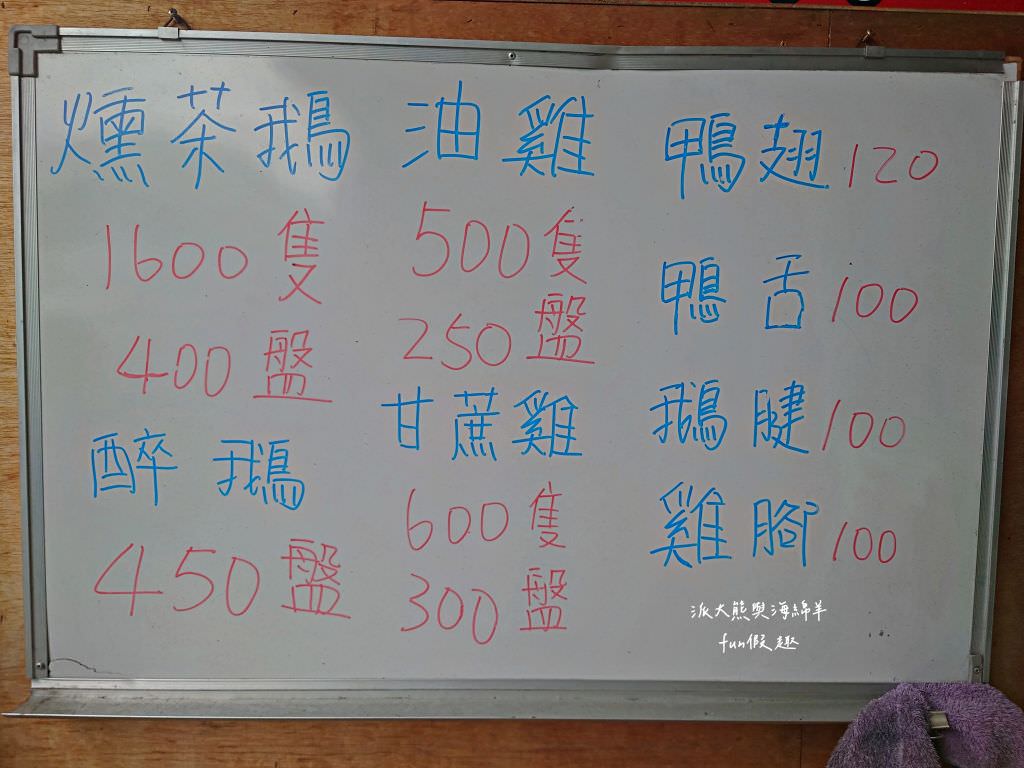 燻茶鵝
1600隻
400盤
醉鵝
450盤
油雞
500隻
250盤
甘蔗雞
600隻
300盤
鴨翅120
鴨舌100
鵝腱100
雞腳100
派大熊與海綿羊
fun假趣